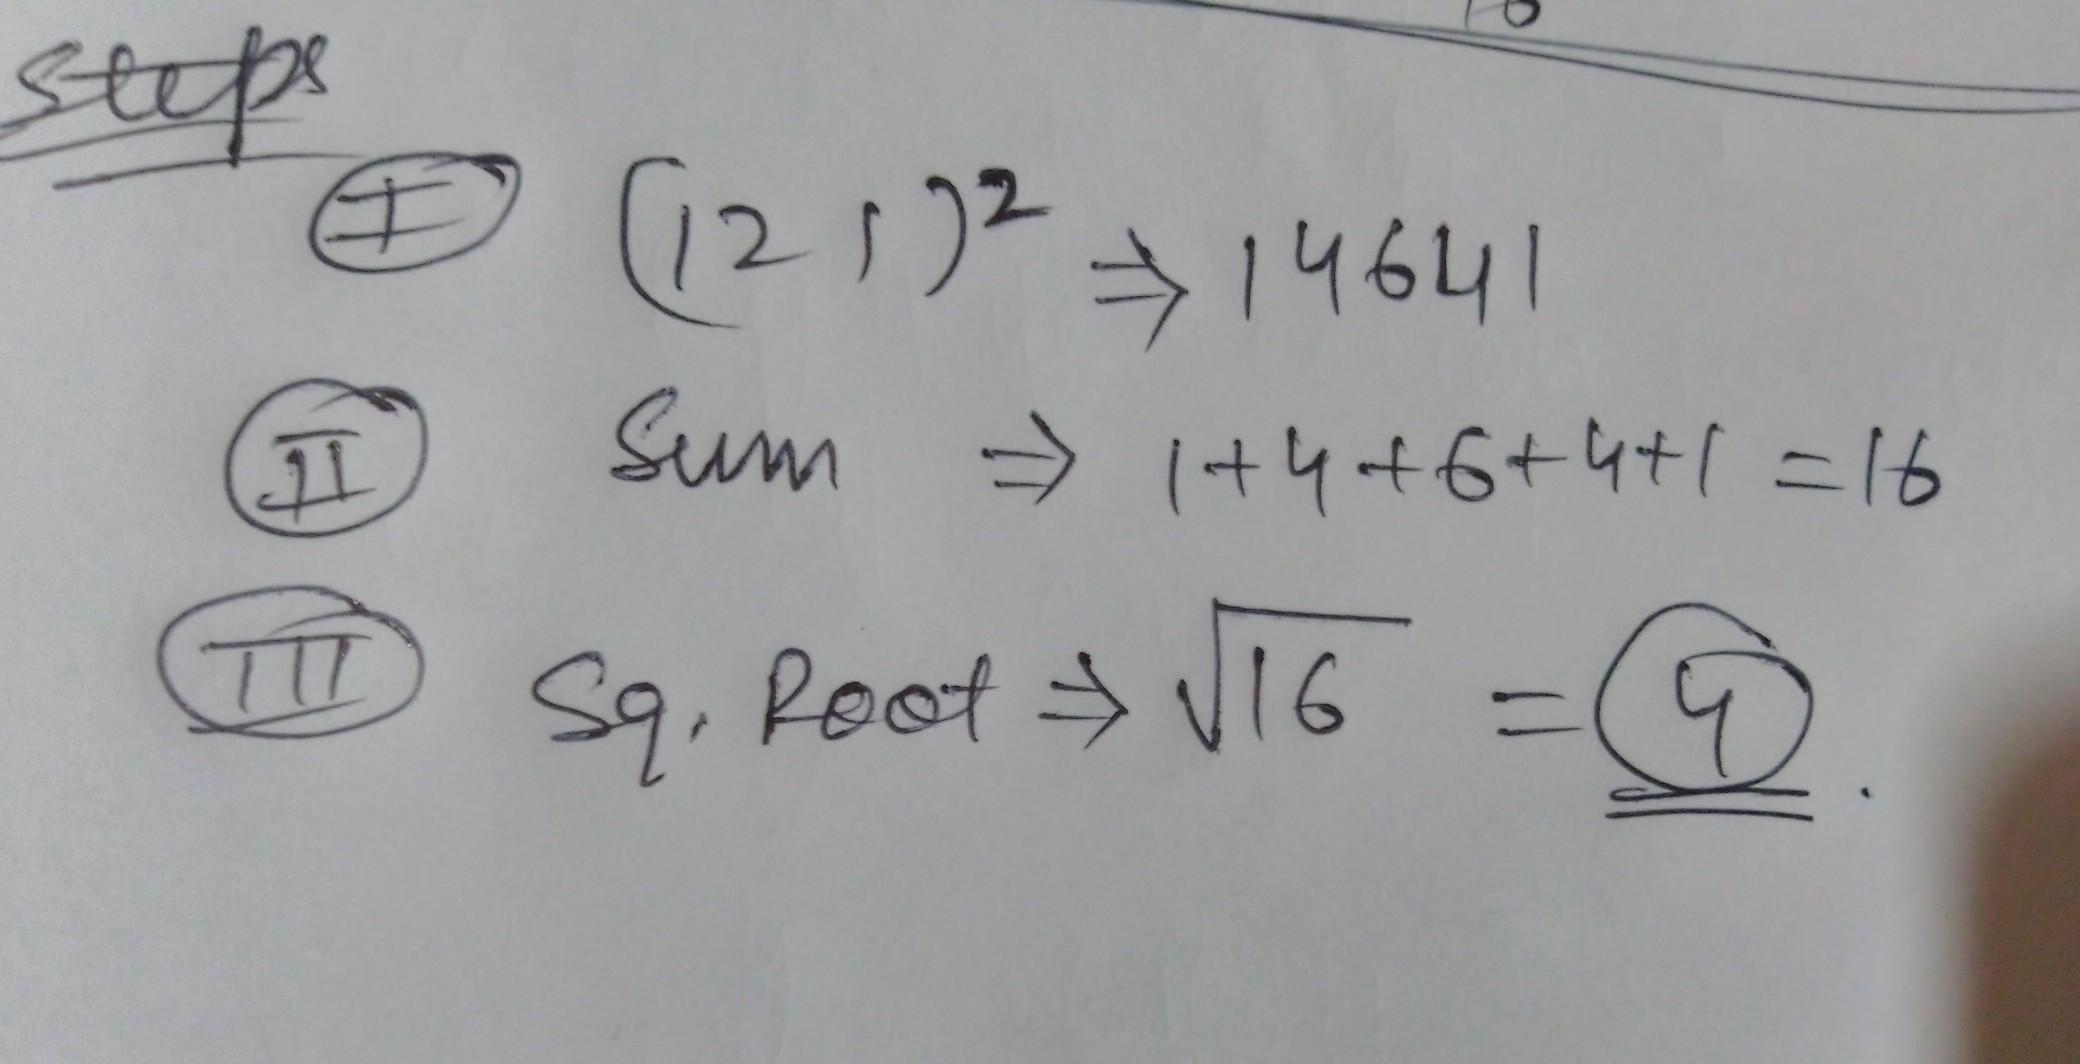 Steps
I (121)² ⇒ 14641
II Sum ⇒ 1+4+6+4+1 = 16
III Sq. Root ⇒ √16 = 4.